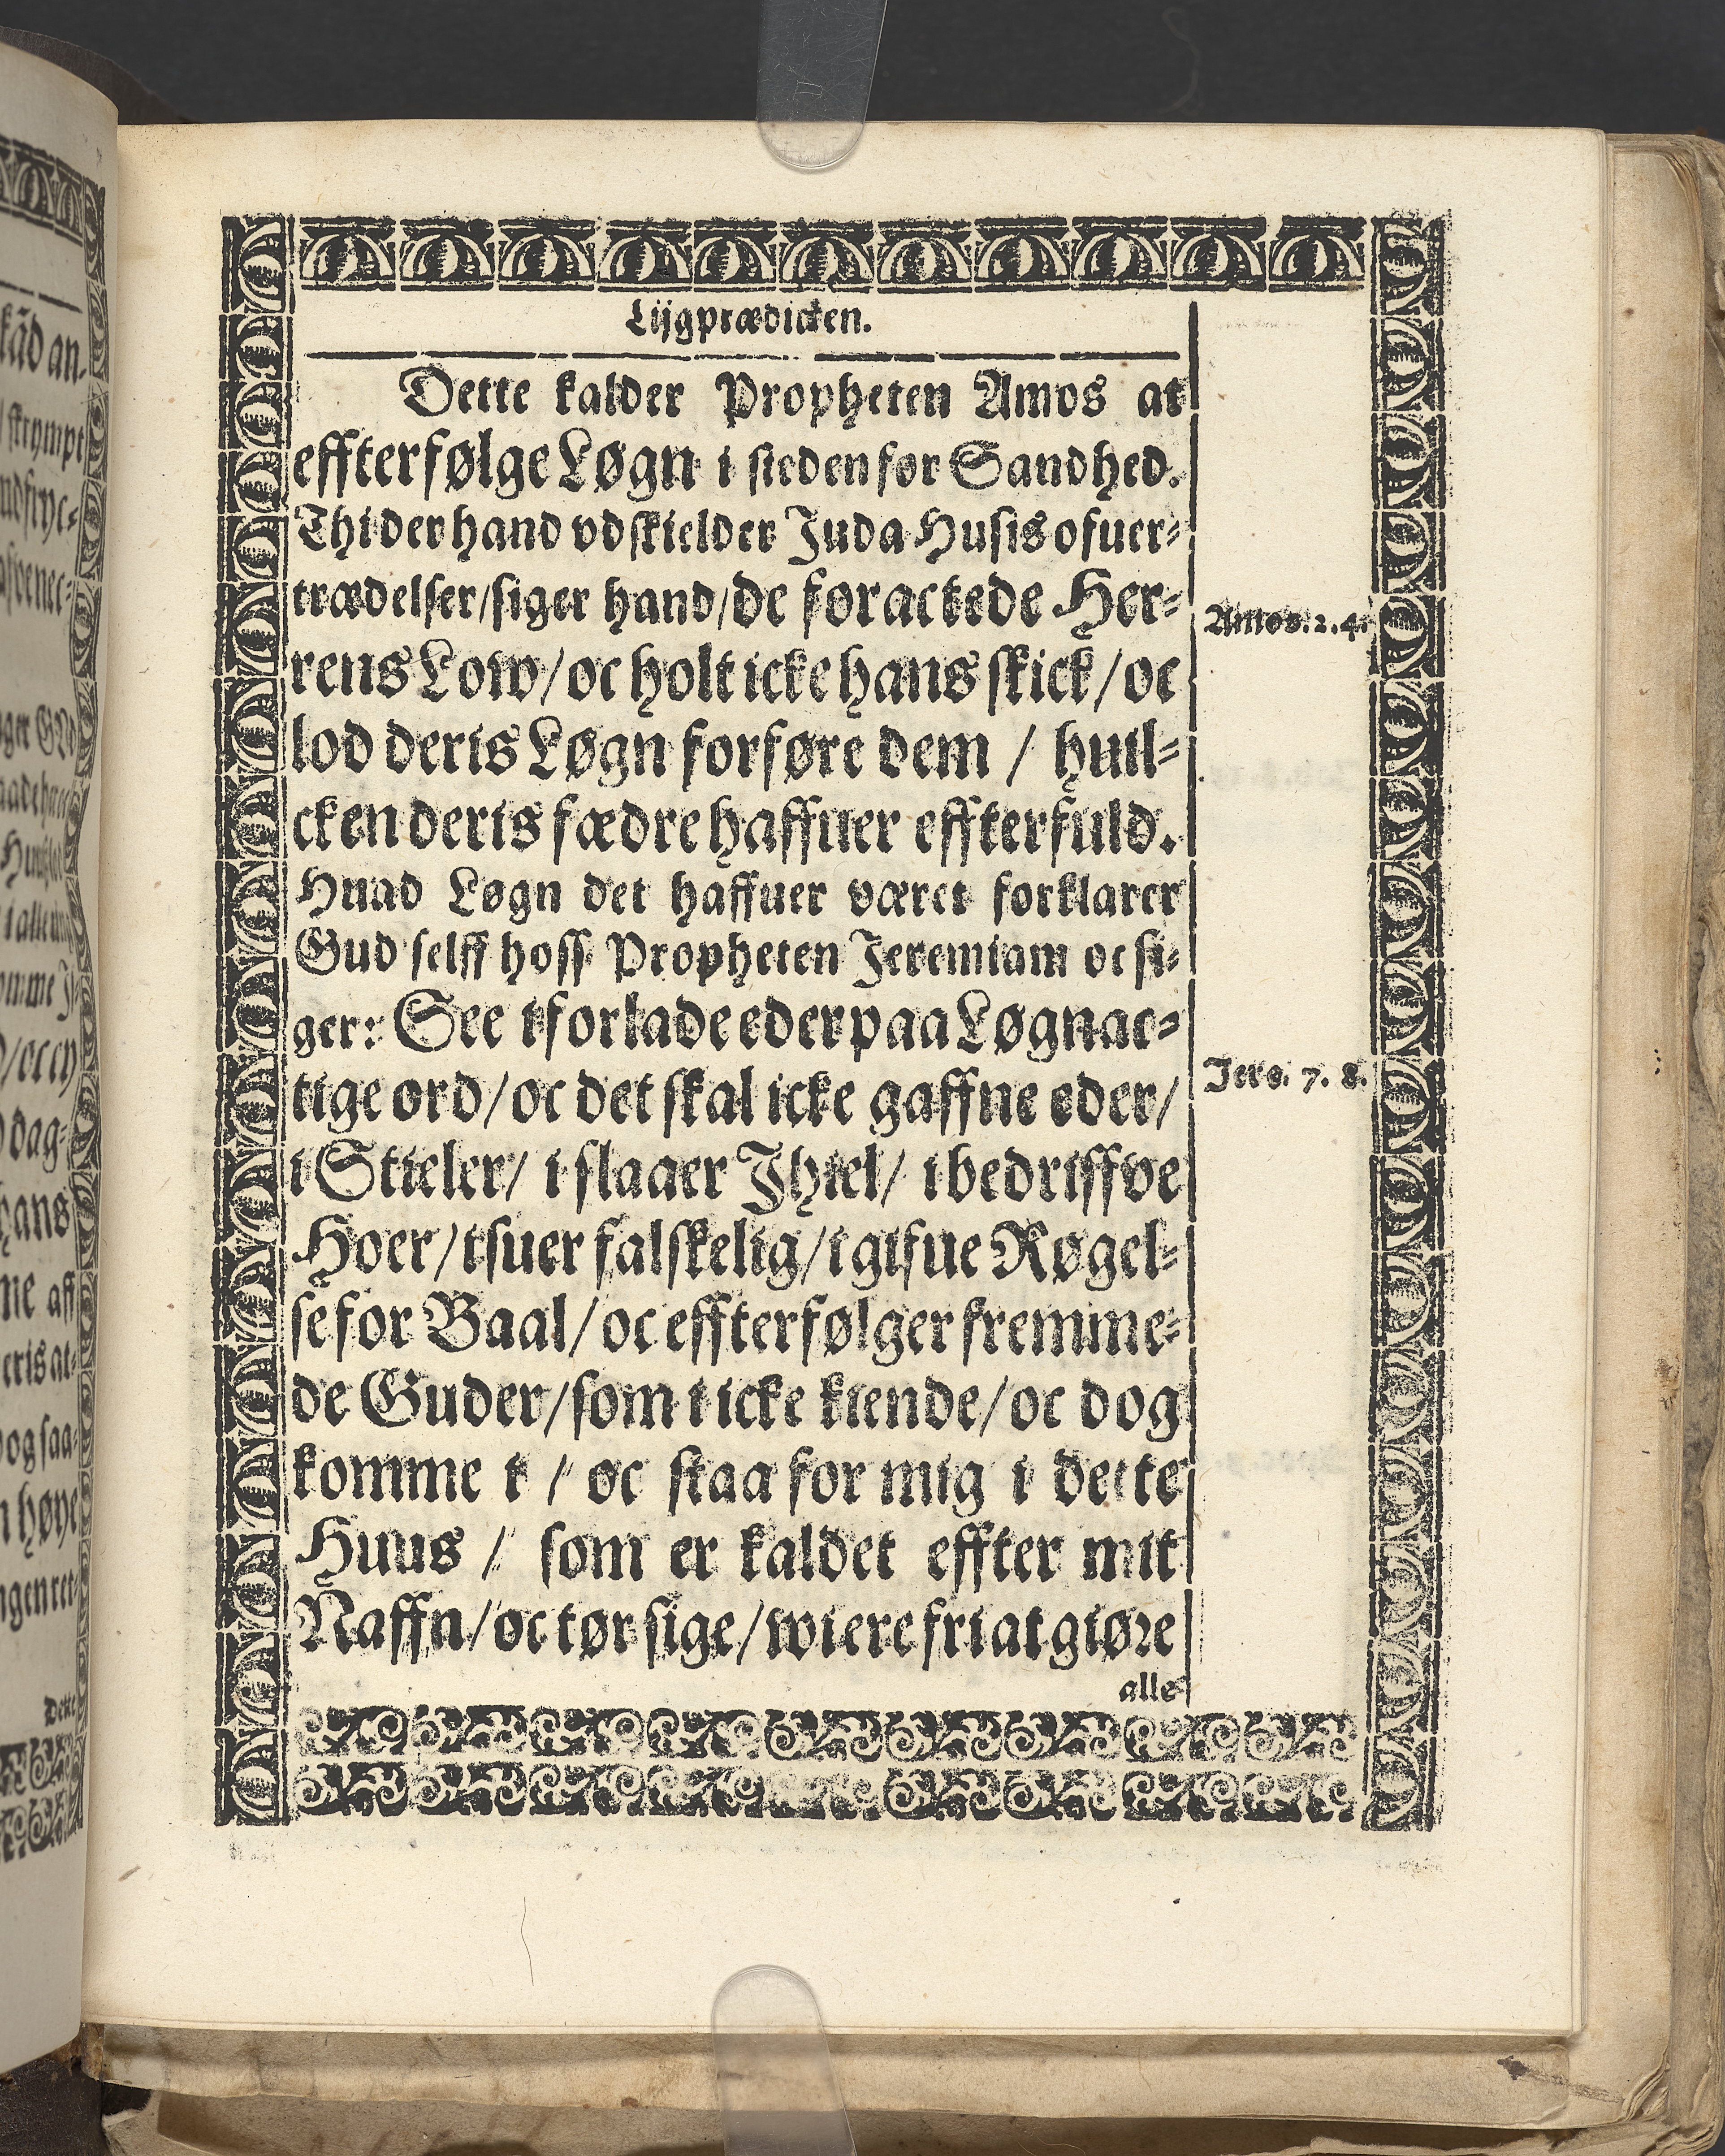 Lijgprædicken.
Dette kalder Propheten Amos at
effterfølge Løgn i steden for Sandhed.
Thi der hand vdskielder Juda Husis ofuer=
trædelser/siger hand/de foractede Her=
rens Low/oc holt icke hans skick/oc
lod deris Løgn forføre dem / huil=
cken deris fædre haffuer effterfuld.
Huad Løgn det haffuer været forklarer
Gud selff hoss Propheten Jeremiam oc si=
ger: See i forlade eder paa Løgnac=
tige ord/oc det skal icke gaffne eder/
i Stieler/ i slaaer Jhiel/ i bedriffve
Hoer/i suer falskelig/i gifue Røgel=
se for Baal/oc effterfølger fremme=
de Guder/som i icke kiende/oc dog
komme i / oc staa for mig i dette
Huus / som er kaldet effter mit
Naffn/oc tør sige/wi ere fri at giøre
alle
Amos. 2. 4.
Jere. 7. 8.
kād an-
strympt
ger GVd
D/oc ey
dag=
hans
me aff
eris at=
dog saa=
høye
Dette